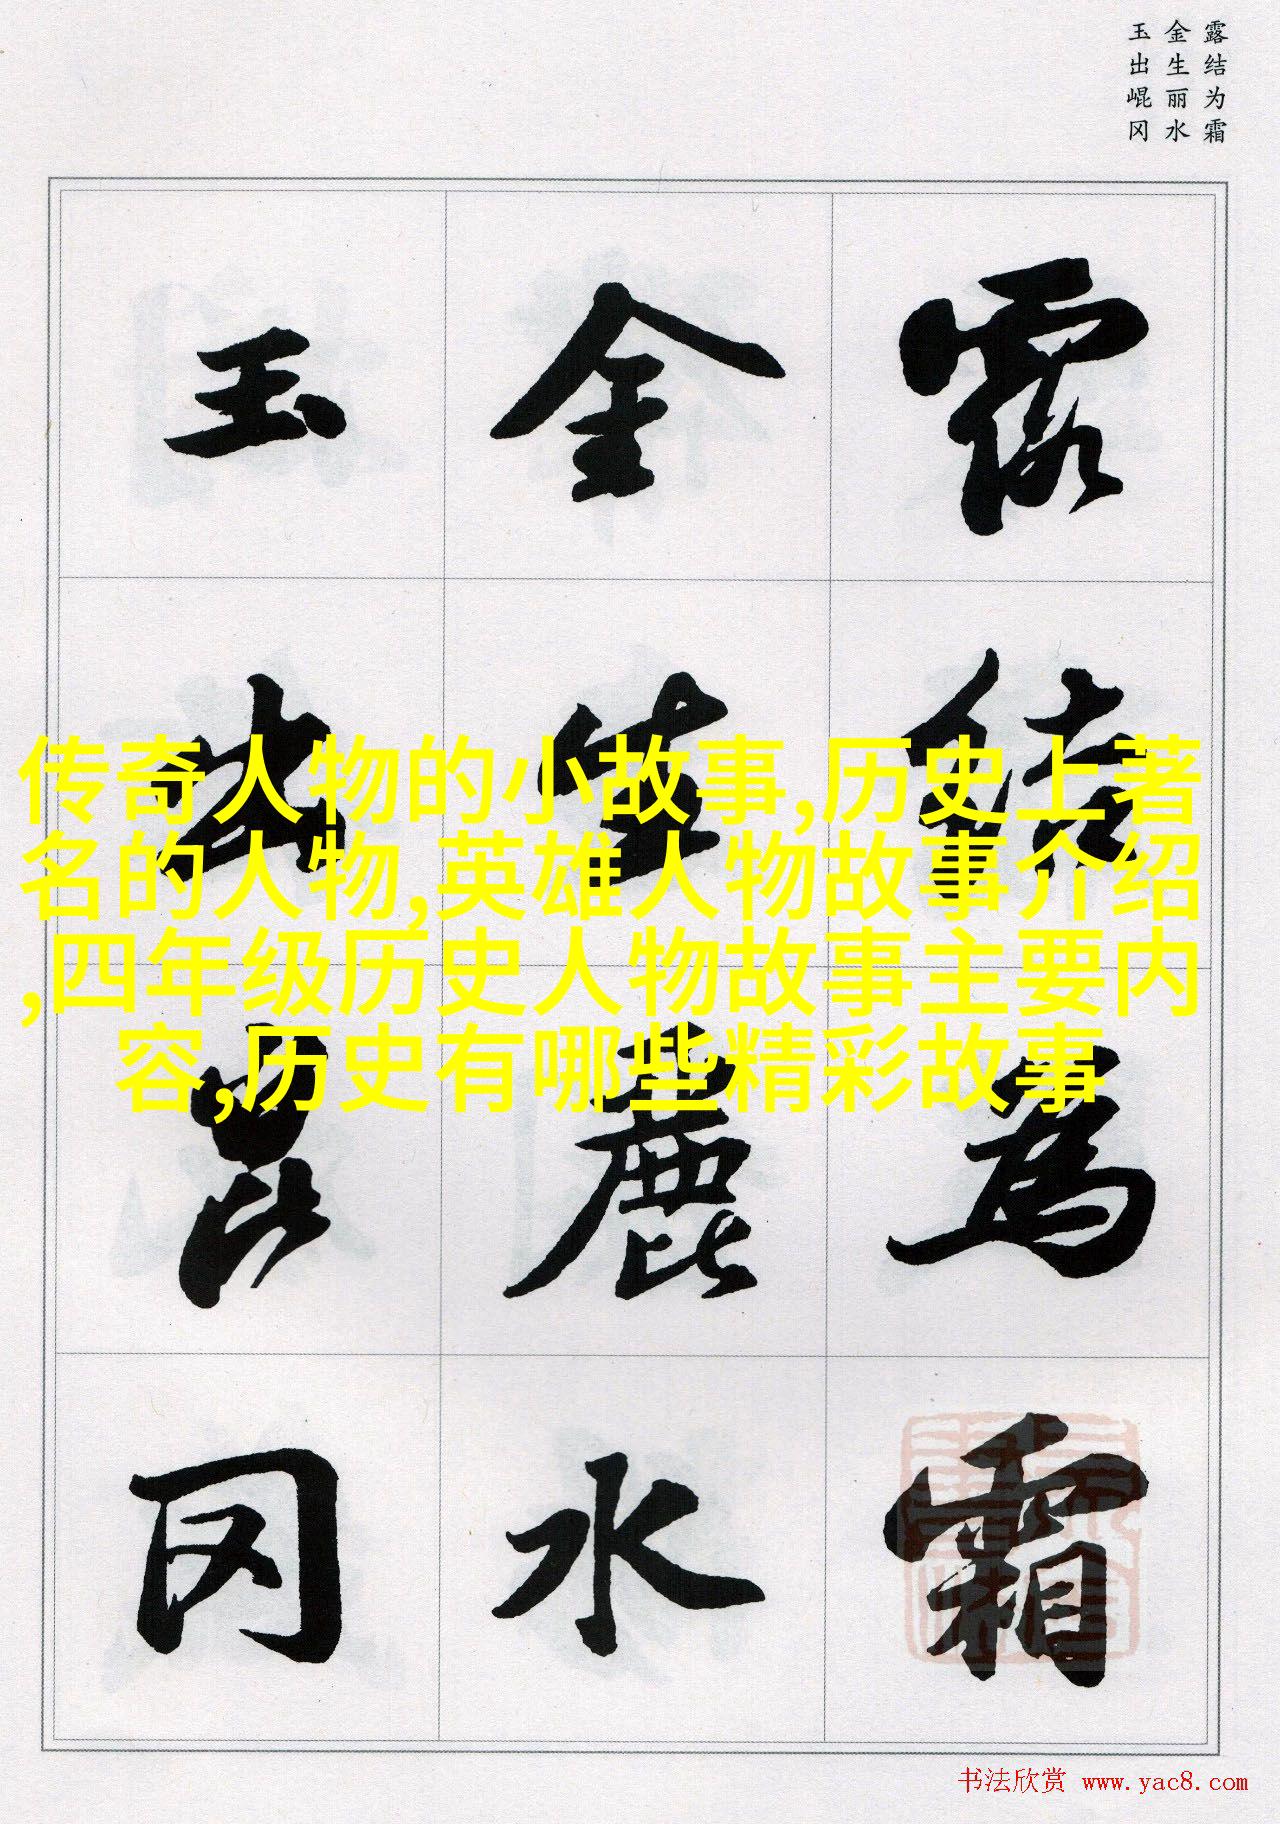 露结为霜
金生丽水
玉出崐冈
露结為霜
金生麗水
玉出崑冈
传奇人物的小故事,历史上著
名的人物,英雄人物故事介绍
,四年级历史人物故事主要内
容,历史有哪些精彩故事
书法欣赏 www.yac8.com